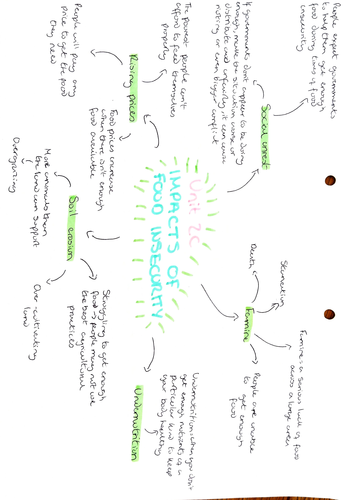 Unit 2C
IMPACTS OF
FOOD INSECURITY
Social unrest
People expect governments
to help them get enough
food during times of food
insecurity
If governments don't appear to be doing
enough, make the situation worse or
distribute aid unfairly, it can cause
rioting or even bigger conflict
Famine
Starvation
Death
Famine is a serious lack of food
across a large area
People are unable
to get enough
food
Undernutrition
Undernutrition: when you don't
get enough nutrients of a
particular kind to keep
your body healthy
Soil erosion
Struggling to get enough
food → people may not use
the best agricultural
practices
Over-cultivating
land
More animals than
the land can support
Overgrazing
Rising prices
Food prices increase
when there isn't enough
food available
People will pay any
price to get the food
they need
The poorest people can't
afford to feed themselves
properly